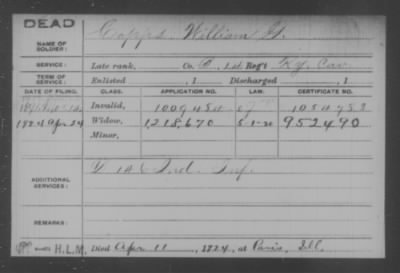 DEAD
NAME OF SOLDIER: Capps, William H.
SERVICE: Late rank, Co. B, 1st Reg't Ky. Cav.
TERM OF SERVICE: Enlisted , 1 Discharged , 1
DATE OF FILING. CLASS. APPLICATION NO. LAW. CERTIFICATE NO.
Invalid,
1924 Apr 24 Widow, 1,218,670 5-1-20 952490
Minor,
ADDITIONAL SERVICES: 146 Ind. Inf.
REMARKS:
H.L.M. Died Apr 11, 1924, at Paris, Ill.